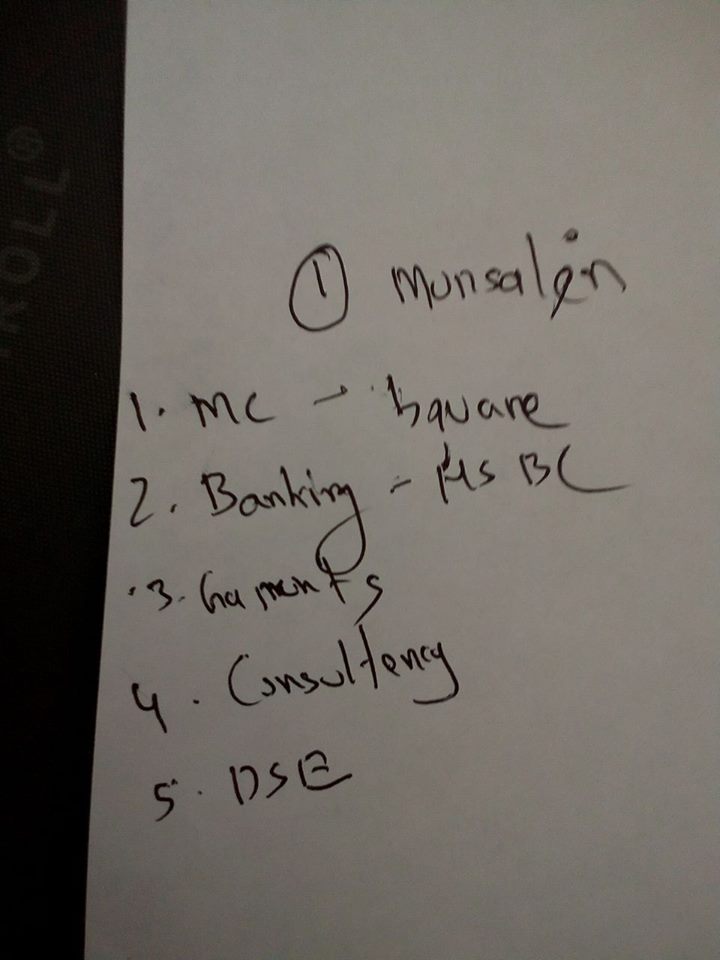 ① Munsalin
1. MC - Square
2. Banking - HSBC
3. Gaments
4. Consultency
5. DSE
ROLL®